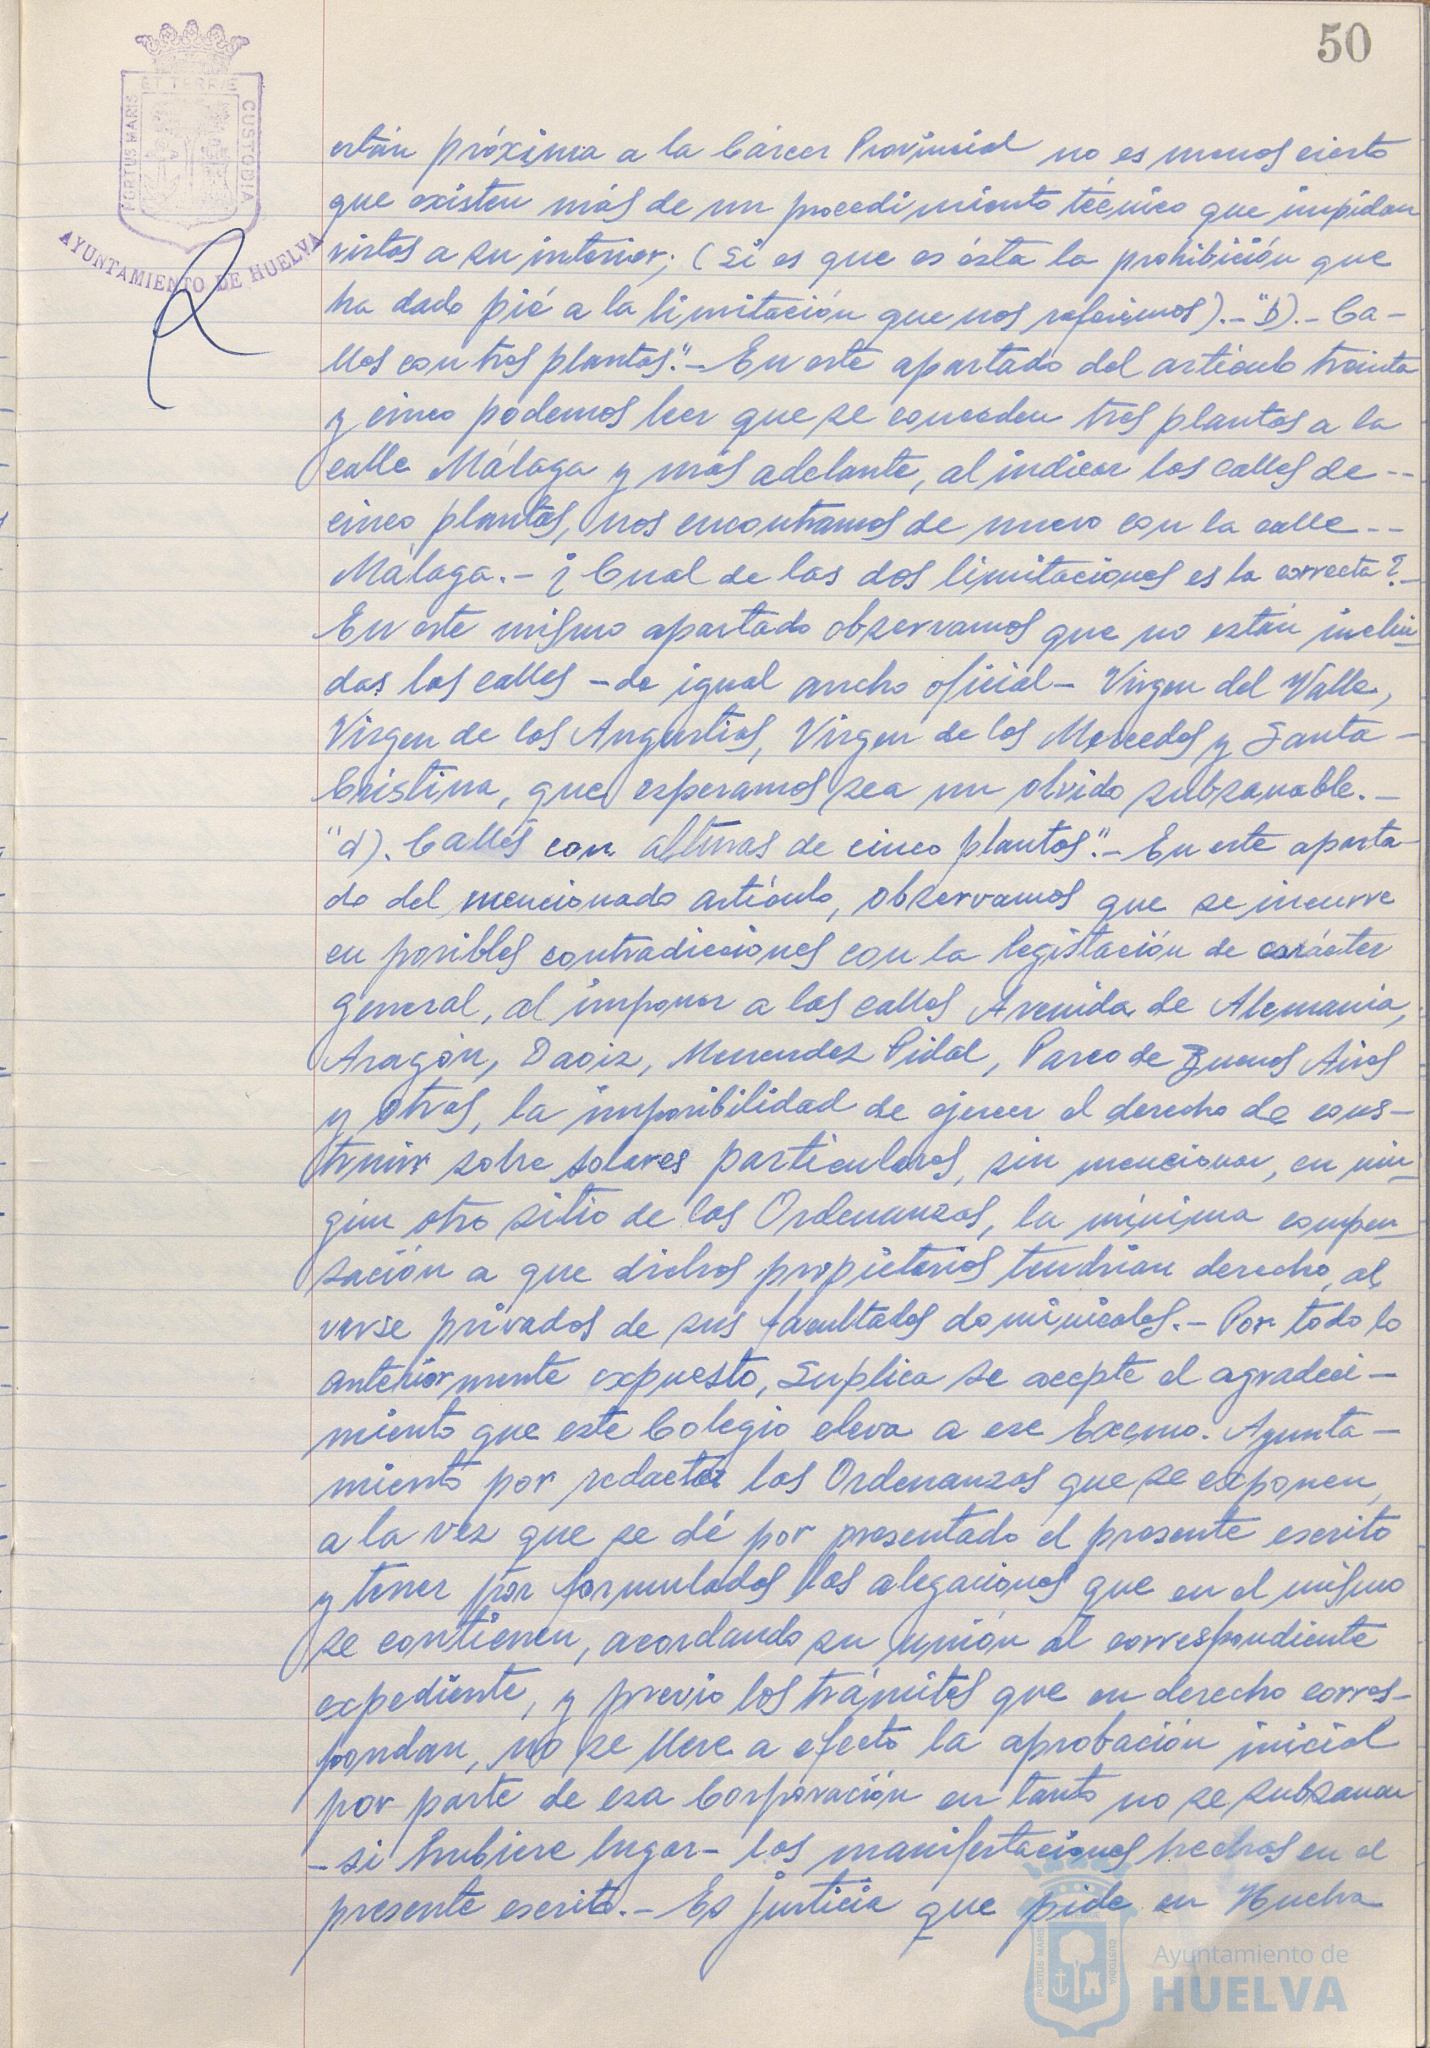 50
ET TERRÆ
PORTUS MARIS
CUSTODIA
AYUNTAMIENTO DE HUELVA
están próxima a la Cárcer Provincial no es menos cierto
que existen más de un procedimiento técnico que impidan
vistas a su interior; (Si es que es ésta la prohibición que
ha dado pié a la limitación que nos referimos).- "b).- Ca-
lles con tres plantas".- En este apartado del artículo treinta
y cinco podemos leer que se conceden tres plantas a la
calle Málaga y más adelante, al indicar las calles de --
cinco plantas, nos encontramos de nuevo con la calle --
Málaga.- ¿Cual de las dos limitaciones es la correcta?.-
En este mismo apartado observamos que no están inclui-
das las calles -de igual ancho oficial- Virgen del Valle,
Virgen de las Angustias, Virgen de las Mercedes y Santa -
Cristina, que esperamos sea un olvido subsanable.-
"d). Calles con alturas de cinco plantas".- En este aparta-
do del mencionado artículo, observamos que se incurre
en posibles contradicciones con la legislación de carácter
general, al imponer a las calles Avenida de Alemania,
Aragón, Daoiz, Menendez Pidal, Paseo de Buenos Aires
y otras, la imposibilidad de ejercer el derecho de cons-
truir sobre solares particulares, sin mencionar, en nin-
gún otro sitio de las Ordenanzas, la mínima compen-
sación a que dichos propietarios tendrían derecho, al
verse privados de sus facultades dominicales.- Por todo lo
anteriormente expuesto, Suplica se acepte el agradeci-
miento que este Colegio eleva a ese Excmo. Ayunta-
miento por redactar las Ordenanzas que se exponen,
a la vez que se dé por presentado el presente escrito
y tener por formulados las alegaciones que en el mismo
se contienen, acordando su unión al correspondiente
expediente, y previo los trámites que en derecho corres-
pondan, no se lleve a efecto la aprobación inicial
por parte de esa Corporación en tanto no se subsanan
-si hubiere lugar- las manifestaciones hechas en el
presente escrito.- Es justicia que pide en Huelva
PORTUS MARIS
CUSTODIA
Ayuntamiento de
HUELVA